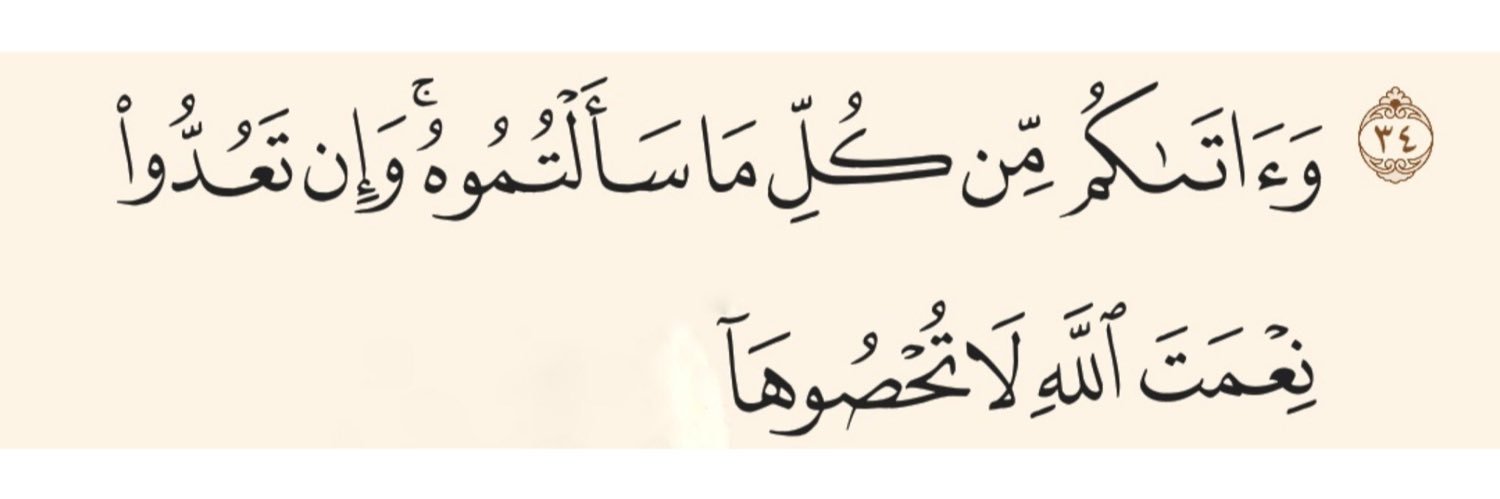 ٣٤ وَءَاتَىٰكُم مِّن كُلِّ مَا سَأَلْتُمُوهُ ۚ وَإِن تَعُدُّوا۟
نِعْمَتَ ٱللَّهِ لَا تُحْصُوهَآ